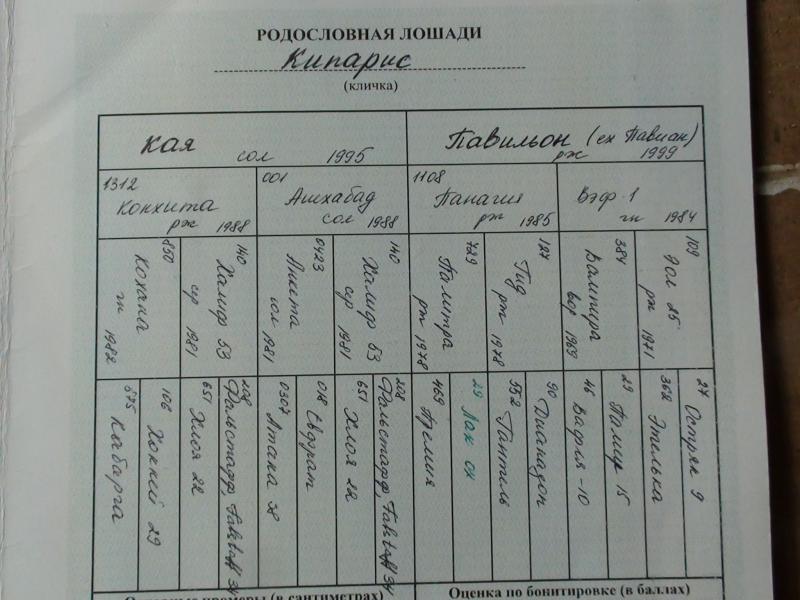 РОДОСЛОВНАЯ ЛОШАДИ
Кипарис
(кличка)
Кая
сол 1995
Павильон (ех Павиан)
рж 1999
1312
Конхита
рж 1988
001
Ашхабад
сол 1988
1108
Панагия
рж 1985
Вэф-1
гн 1984
850
Кохана
гн 1982
140
Халиф 53
ср 1981
0423
Анкета
сол 1981
140
Халиф 53
ср 1981
729
Палитра
рж 1978
127
Гид
рж 1978
384
Вампира
вор 1969
109
Эол 25
рж 1971
675
Кабарга
106
Хоккей 29
651
Хлоя 22
208
Фальстафф, Falstaff 34
0307
Атака 38
018
Евфрат
651
Хлоя 22
208
Фальстафф, Falstaff 34
469
Премия
29
Лак ох
552
Гантель
90
Диапазон
46
Вафля-10
29
Памир 15
362
Эпилька
27
Остряк 9
Основные промеры (в сантиметрах)
Оценка по бонитировке (в баллах)